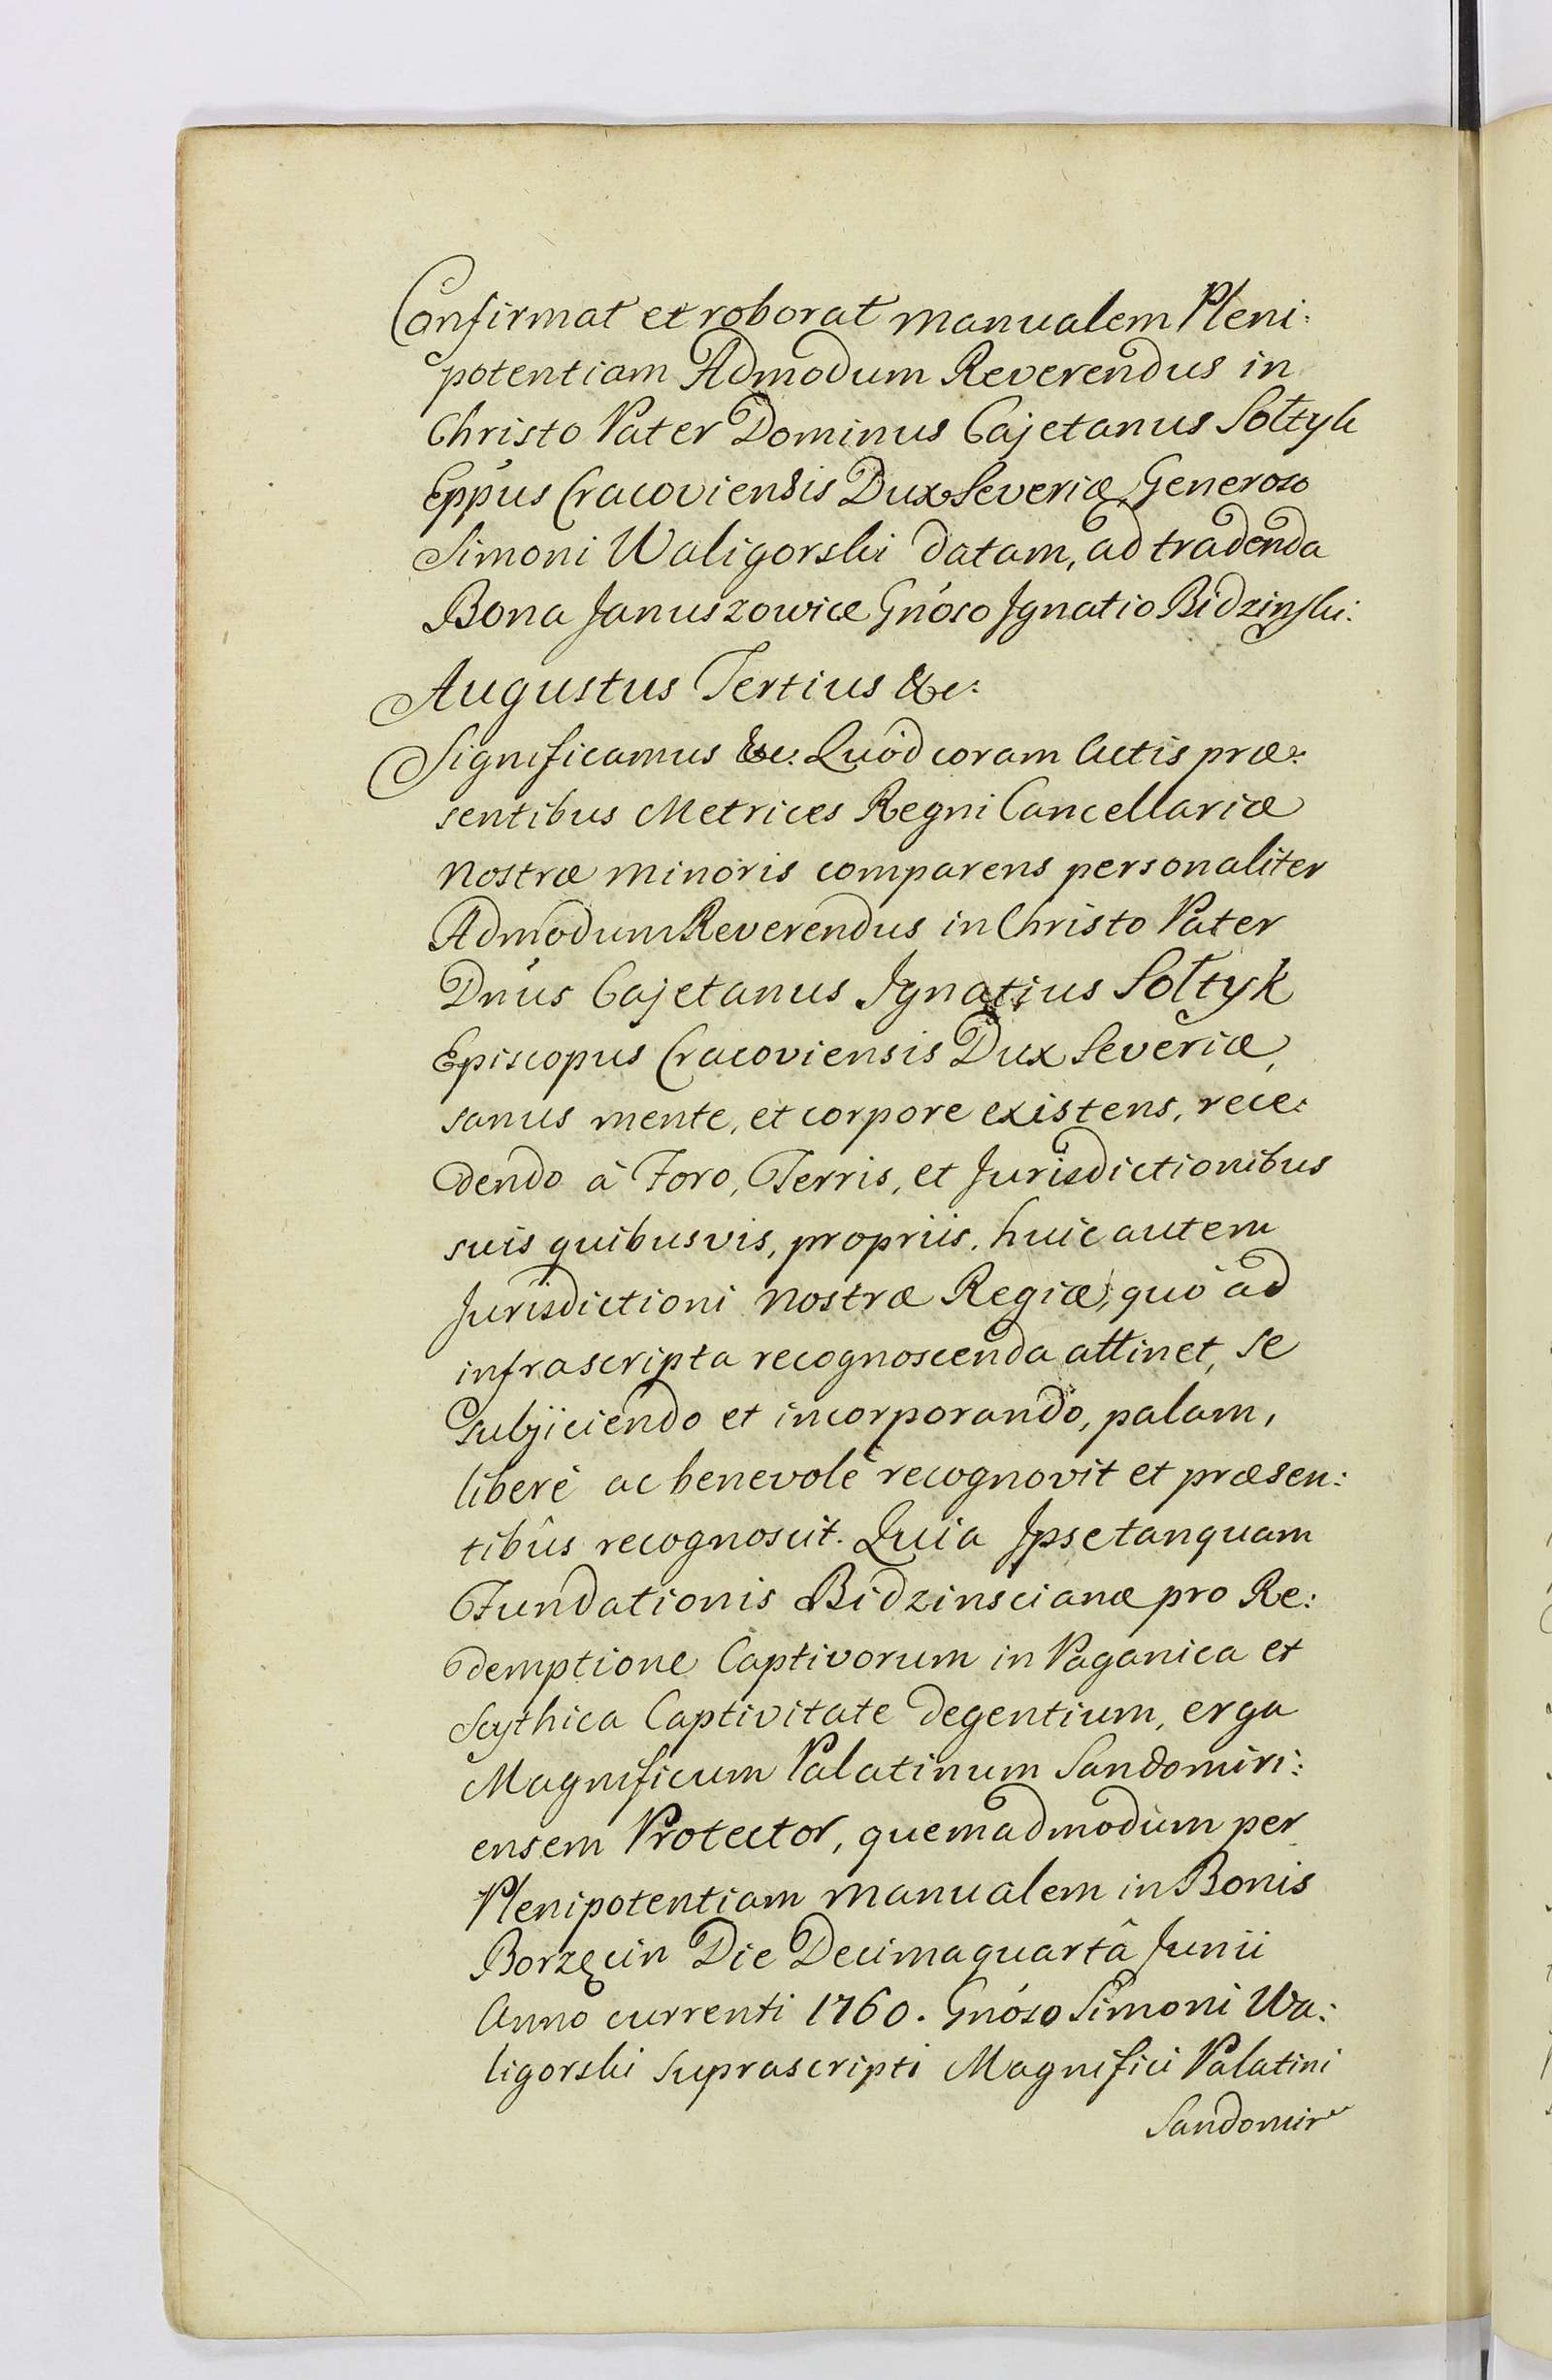 Confirmat et roborat manualem Pleni:
potentiam Admodum Reverendus in
Christo Pater Dominus Cajetanus Sołtyk
Eppus Cracoviensis Dux Severiæ Generoso
Simoni Waligorski datam, ad tradenda
Bona Januszowice Gnóso Ignatio Bidzinski:
Augustus Tertius &c:
Significamus &c: Quòd coram Actis præ:
sentibus Metrices Regni Cancellariæ
Nostræ minoris comparens personaliter
Admodum Reverendus in Christo Pater
Dnus Cajetanus Ignatius Sołtyk
Episcopus Cracoviensis Dux Severiæ,
sanus mente, et corpore existens, rece:
dendo à Foro, Terris, et Jurisdictionibus
suis quibusvis, propriis, huic autem
Jurisdictioni Nostræ Regiæ, quò ad
infrascripta recognoscenda attinet, se
subjiciendo et incorporando, palam,
liberè ac benevolè recognovit et præsen:
tibûs recognoscit. Quia Ipse tanquam
Fundationis Bidzinscianæ pro Re:
demptione Captivorum in Paganica et
Scythica Captivitate degentium, erga
Magnificum Palatinum Sandomiri:
ensem Protector, quemadmodum per
Plenipotentiam manualem in Bonis
Borzęcin Die Decimaquartâ Junii
Anno currenti 1760. Gnóso Simoni Wa:
ligorski suprascripti Magnifici Palatini
Sandomir